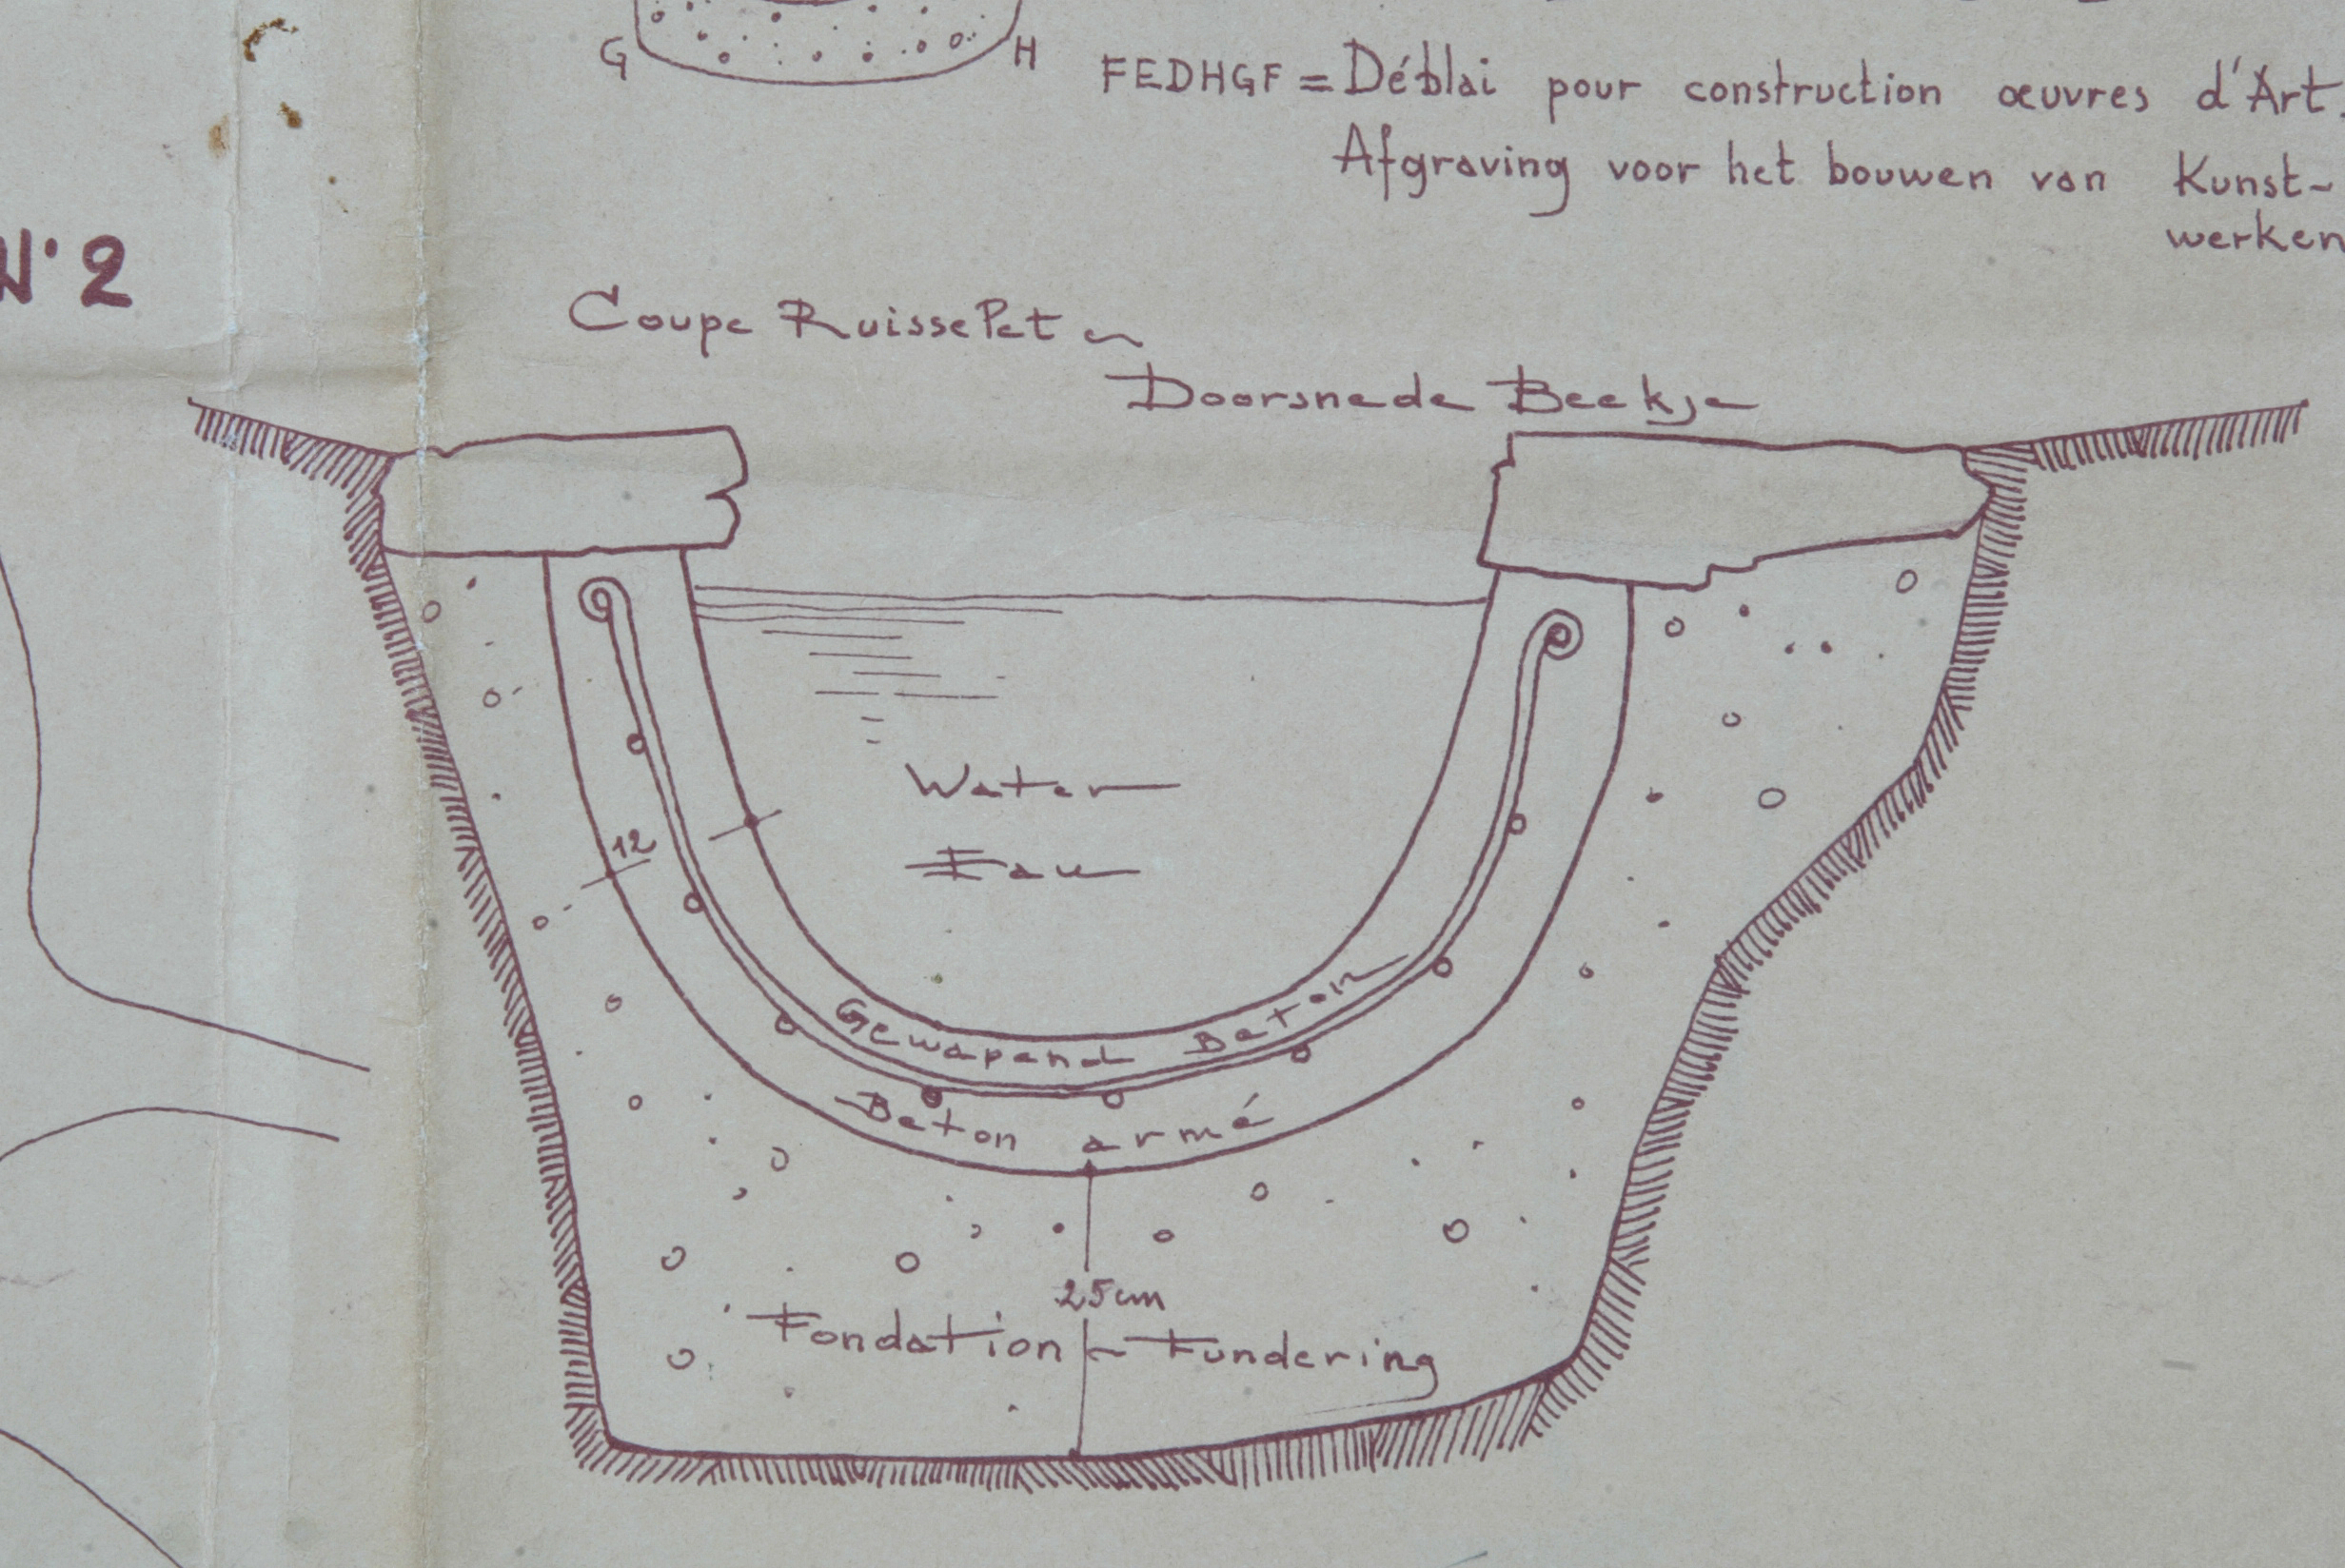 G
H
FEDHGF = Déblai pour construction œuvres d'Art.
Afgraving voor het bouwen van Kunst-
werken
N° 2
Coupe Ruisselet ~
Doorsnede Beekje
Water
Eau
12
Gewapend Beton
Beton armé
25cm
Fondation ~ Fundering